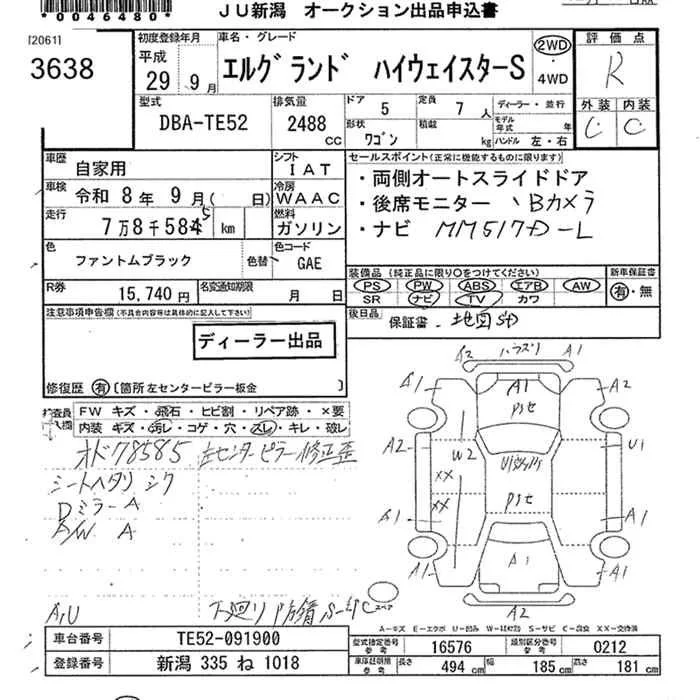 *0046480*
JU新潟 オークション出品申込書
[2061]
3638
初度登録年月
平成
29年 9月
車名・グレード
エルグランド ハイウェイスターS
2WD
・
4WD
評価点
R
外装 内装
C C
型式
DBA-TE52
排気量
2488
CC
ドア
5
形状
ワゴン
定員
7人
積載
kg
ディーラー・並行
モデル年式 年
ハンドル 左・右
車歴
自家用
シフト
IAT
車検
令和 8年 9月( 日)
冷房
WAAC
走行
7万8千5845 km
燃料
ガソリン
色
ファントムブラック
色替
色コード
GAE
R券
15,740円
名変通知期限
月 日
セールスポイント(正常に機能するものに限ります)
・両側オートスライドドア
・後席モニター 、Bカメラ
・ナビ MM517D-L
装備品(純正品に限り○をつけてください)
PS PW ABS エアB AW
SR ナビ TV カワ
新車保証書
有・無
後日品
保証書、地図SD
注意事項申告欄(不具合内容等は具体的に記入して下さい)
ディーラー出品
修復歴 有 [箇所 左センターピラー板金 ]
検査員記入欄
FW キズ・飛石・ヒビ割・リペア跡・×要
内装 キズ・汚レ・コゲ・穴・スレ・キレ・破レ
オド78585 左センターピラー修正歪
シートヘタリ シワ
Dミラー A
A/W A
A,U
下廻り防錆 S-部C
A2 ハラズリ A1
A1 A1 A2
Pse
A2 W2 U1
XX
XX Pse
A1 A1
A1 A1 A1
A2
スペア
A-キズ E-エクボ U-凹み W-補修跡 S-サビ C-腐食 XX-交換済
車台番号
TE52-091900
登録番号
新潟 335 ね 1018
型式指定番号 参考
16576
類別区分番号 参考
0212
車庫証明用 参考
長さ 494 cm 幅 185 cm 高さ 181 cm